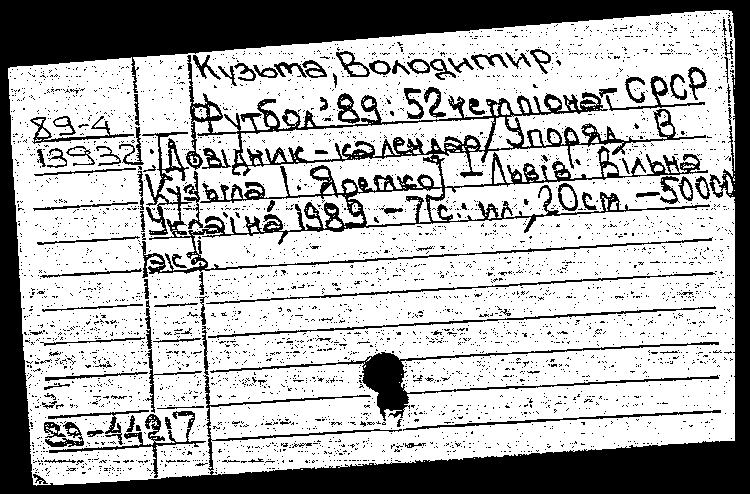 Кузьма, Володимир.
89-4 Футбол'89: 52 чемпіонат СРСР
13932 : [Довідник-календар / Упоряд.: В.
Кузьма, І. Яремко]. – Львів: Вільна
Україна, 1989. – 71с.: ил.; 20см. – 50000
экз.
89-44217